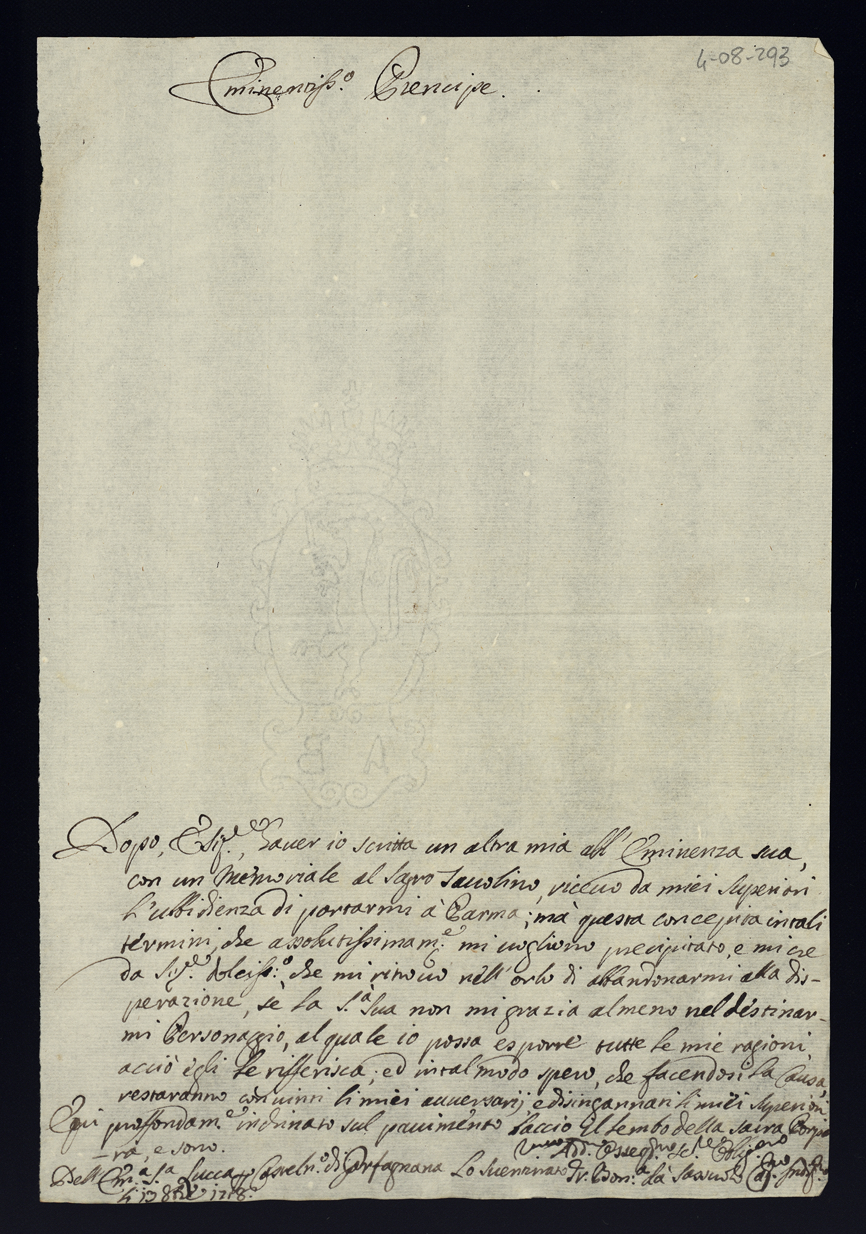 4-08-293
Eminentiss.º Prencipe.
Dopo, E Sig.re, d'haver io scritta un altra mia all'Eminenza sua,
con un Memoriale al Sagro Tavolino, ricevo da miei Superiori
l'ubbidienza di portarmi à Parma; mà questa concepita in tali
termini, che assolutissimam.e mi vogliono precipitato, e mi cre
da Sig.re dolciss.º che mi ritrovo nell'orlo di abbandonarmi alla dis-
perazione, sè la S.a Sua non mi grazia almeno nel destinar-
mi Personaggio, al quale io possa esporre tutte le mie ragioni,
acciò egli le rifferisca; ed in tal modo spero, che facendosi la Causa,
restaranno convinti li miei avversarij, e disingannati li miei Superiori
E qui proffondam.e inchinato sul pavimento baccio il lembo della Sacra Porpo
-ra, e sono.
Dell'Em.a S.a Lucca pp Casteln.º di Garfagnana Lo Sventurato Fr. Bon.a da Sassuolo
li 13 8bre 1718.